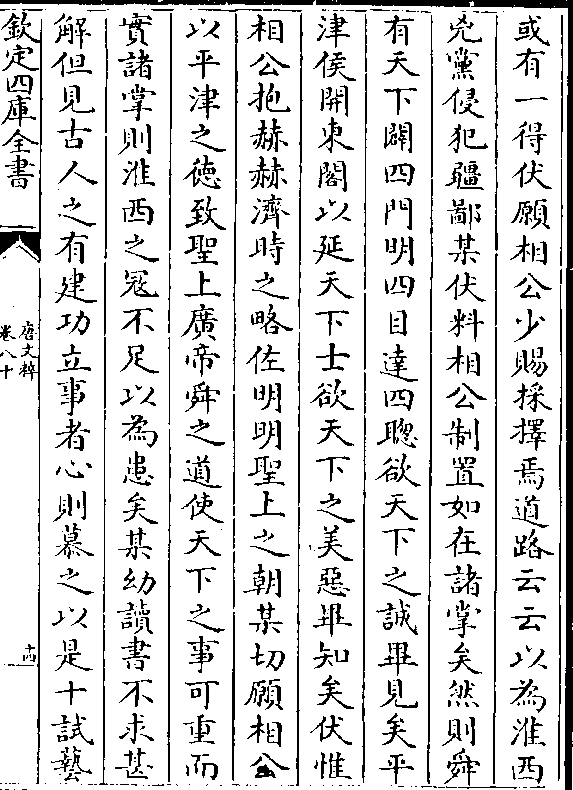 或有一得伏願相公少賜採擇焉道路云云以為淮西
兇黨侵犯疆鄙某伏料相公制置如在諸掌矣然則舜
有天下闢四門明四目達四聰欲天下之誠畢見矣平
津侯開東閣以延天下士欲天下之美惡畢知矣伏惟
相公抱赫赫濟時之略佐明明聖上之朝某切願相公
以平津之徳致聖上廣帝舜之道使天下之事可重而
實諸掌則淮西之冦不足以為患矣某幼讀書不求甚
解但見古人之有建功立事者心則慕之以是十試藝
欽定四庫全書
唐文粹
卷八十
十四